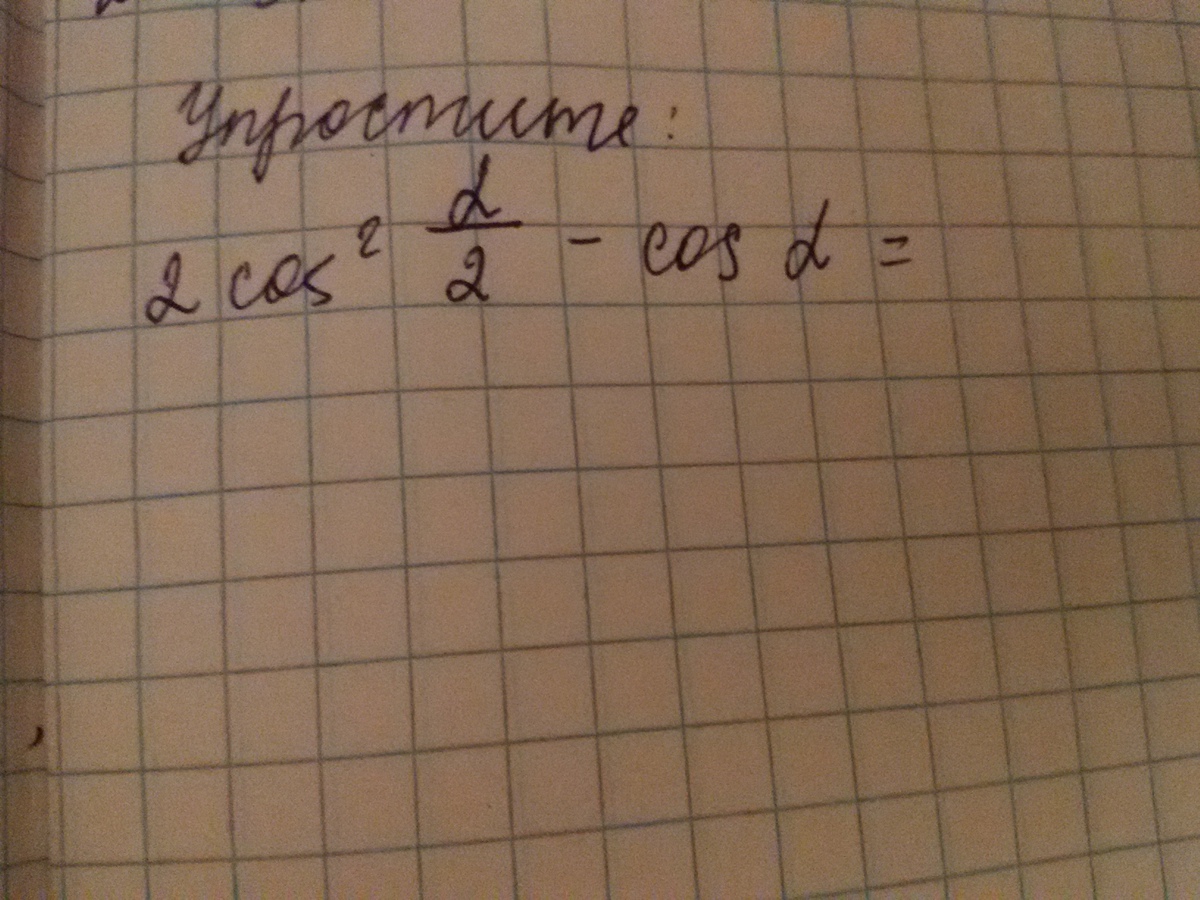 Упростите:
2 cos² α/2 - cos α =